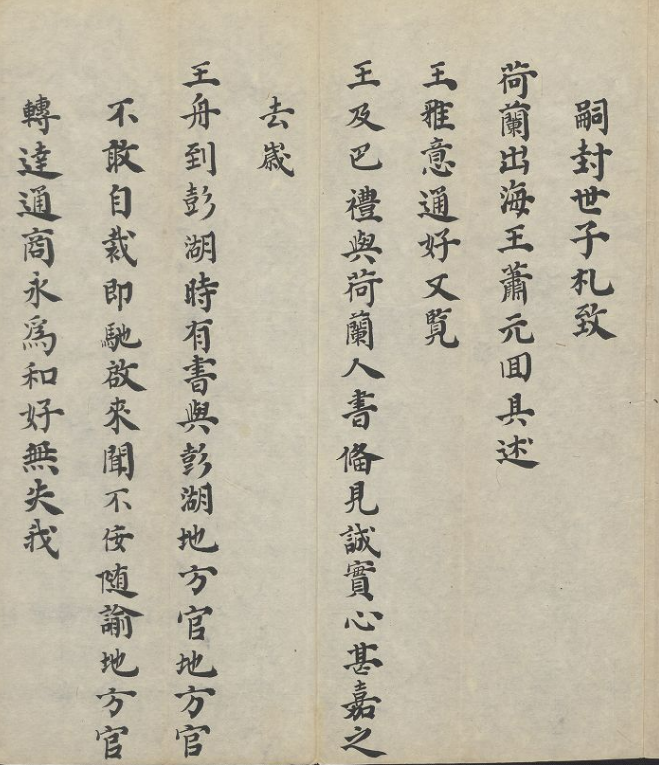 嗣封世子札致
荷蘭出海王蕭元囬具述
王雅意通好又覧
王及巴禮與荷蘭人書備見誠實心甚嘉之
去嵗
王舟到彭湖時有書與彭湖地方官地方官
不敢自裁即馳啟來聞不佞随諭地方官
轉達通商永爲和好無失我